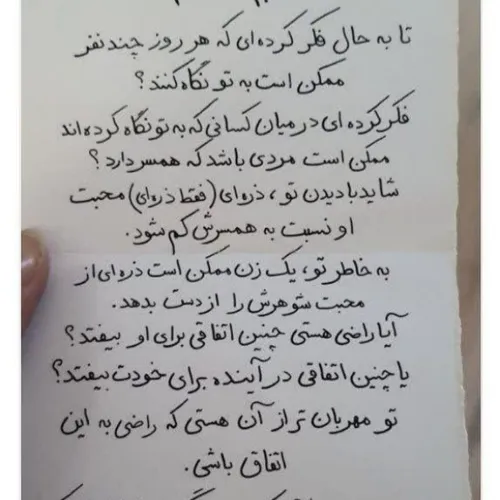 تا به حال فکر کرده‌ای که هر روز چند نفر
ممکن است به تو نگاه کنند؟
فکر کرده ای در میان کسانی که به تو نگاه کرده اند
ممکن است مردی باشد که همسر دارد؟
شاید با دیدن تو، ذره ای (فقط ذره‌ای) محبت
او نسبت به همسرش کم شود.
به خاطر تو، یک زن ممکن است ذره ای از
محبت شوهرش را از دست بدهد.
آیا راضی هستی چنین اتفاقی برای او بیفتد؟
یا چنین اتفاقی در آینده برای خودت بیفتد؟
تو مهربان تر از آن هستی که راضی به این
اتفاق باشی.